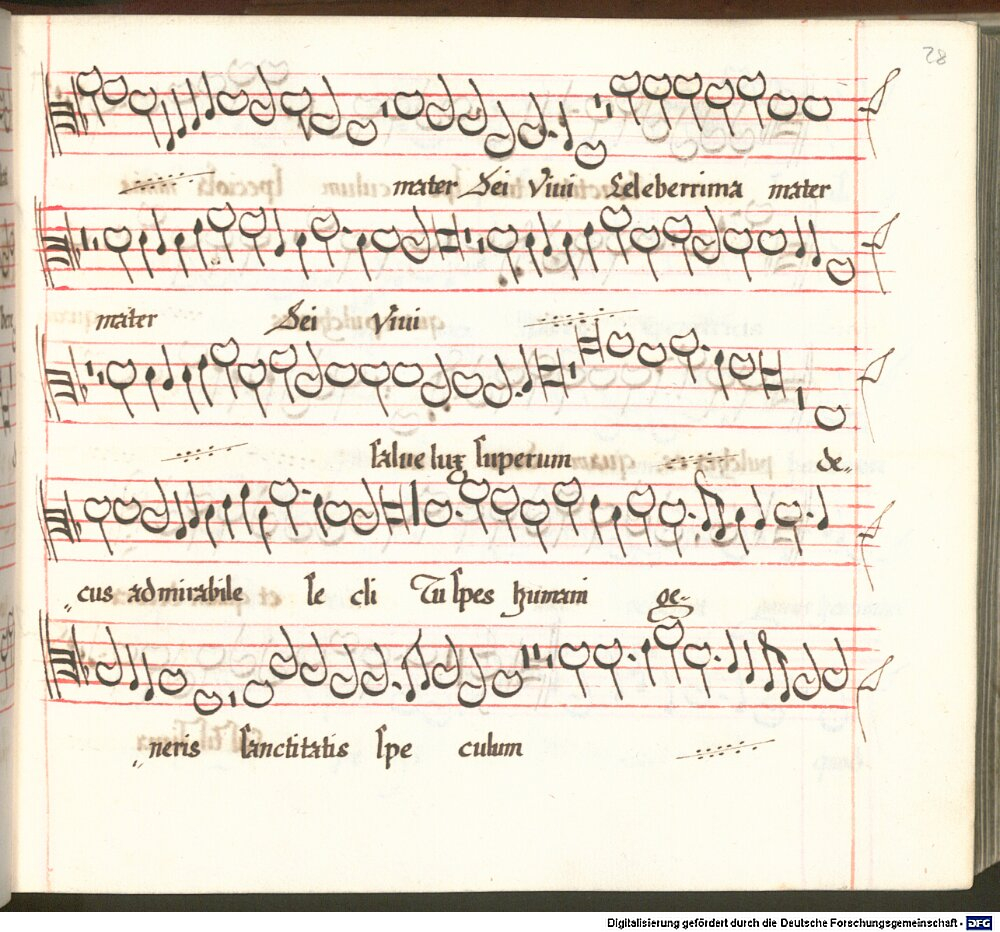 28
mater Dei Viui Celeberrima mater
mater Dei Viui
salue lux superum de-
cus admirabile se cli Tu spes humani ge-
neris sanctitatis spe culum
Digitalisierung gefördert durch die Deutsche Forschungsgemeinschaft - DFG